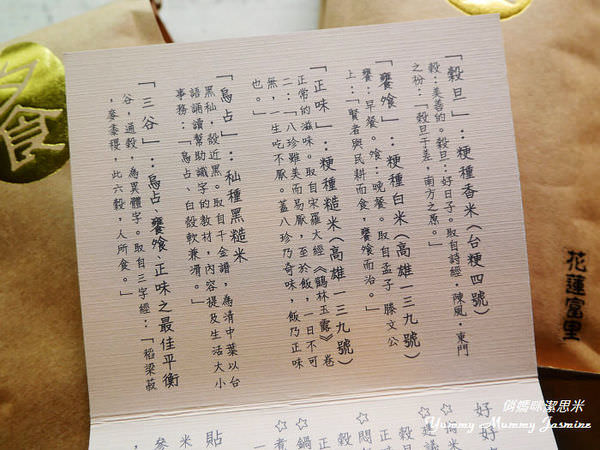 「穀旦」:粳種香米(台粳四號)
穀:美善的。穀旦:好日子。取自詩經.陳風.東門
之枌:「穀旦于差,南方之原。」
「饔飧」:粳種白米(高雄一三九號)
饔:早餐。飧:晚餐。取自孟子 滕文公
上:「賢者與民耕而食,饔飧而治。」
「正味」:粳種糙米(高雄一三九號)
正常的滋味。取自宋羅大經《鶴林玉露》卷
二:「八珍雖美而易厭,至於飯,一日不可
無,一生吃不厭。蓋八珍乃奇味,飯乃正味
也。」
「烏占」:秈種黑糙米
黑秈,殼近黑。取自千金譜,為清中葉以台
語誦讀幫助識字的教材,內容提及生活大小
事務:「烏占、白殼軟兼滑。」
「三谷」:烏占、饔飧、正味之最佳平衡
谷,通穀,為異體字。取自三字經:「稻粱菽
,麥黍稷,此六穀,人所食。」
花蓮富里
俏媽咪潔思米
Yummy Mummy Jasmine